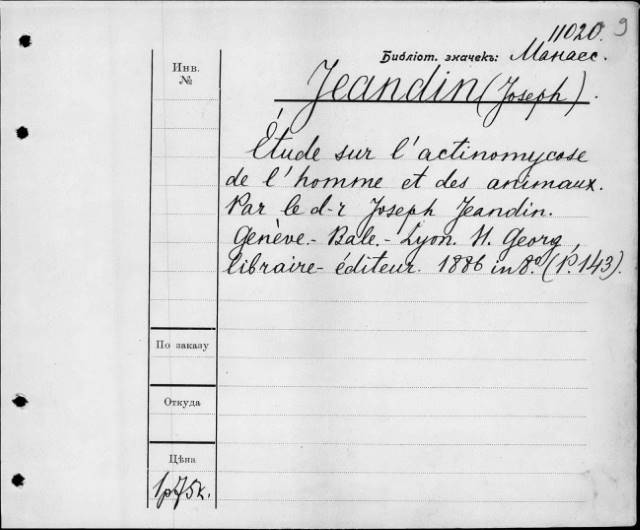 11020. 9
Библіот. значекъ: Манаес.
Инв.
№
Jeandin (Joseph).
Étude sur l'actinomycose
de l'homme et des animaux.
Par le d-r Joseph Jeandin.
Genève.- Bale.- Lyon. H. Georg,
libraire-éditeur. 1886 in 8.° (P. 143).
По заказу
Откуда
Цѣна
1р75к.